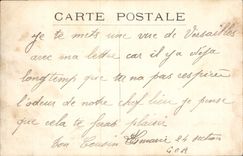 CARTE POSTALE
je te mets une vue de Versailles
avec ma lettre car il y a déja
longtemps que tu na pas respirée
l'odeur de notre chef lieu je pense
que cela te fera plaisir
ton Cousin 24 section